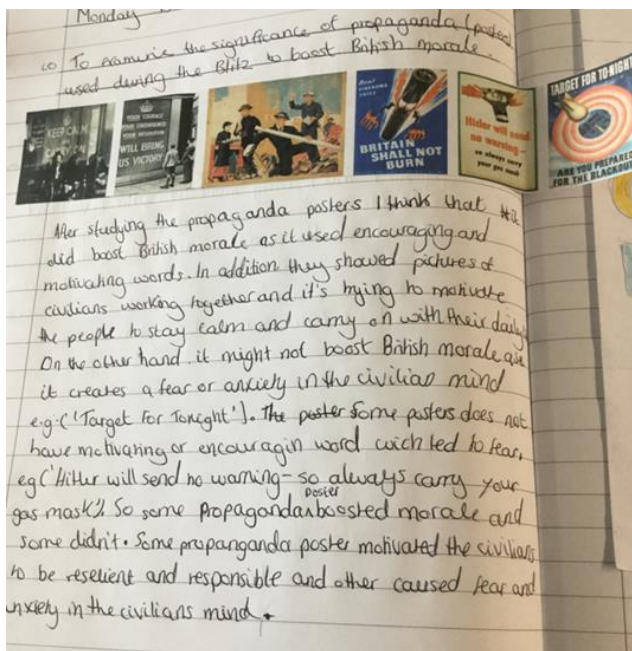 Monday
L.O To examine the significance of propaganda (posters)
used during the Blitz to boost British morale.
KEEP CALM
YOUR COURAGE
YOUR CHEERFULNESS
YOUR RESOLUTION
WILL BRING
US VICTORY
BRITAIN
SHALL NOT
BURN
Hitler will send
no warning –
so always carry
your gas mask
TARGET FOR TO-NIGHT
ARE YOU PREPARED
FOR THE BLACKOUT
After studying the propaganda posters I think that it
did boost British morale as it used encouraging and
motivating words. In addition they showed pictures of
civilians working together and it's trying to motivate
the people to stay calm and carry on with their daily
On the other hand it might not boost British morale as
it creates a fear or anxiety in the civilian mind
e.g. ('Target For Tonight'). The poster Some posters does not
have motivating or encouragin word wich led to fear.
eg ('Hitler will send no warning – so always carry your
gas mask'). So some Propaganda poster boosted morale and
some didn't. Some propanganda poster motivated the civilians
to be reselient and responsible and other caused fear and
anxiety in the civilians mind.